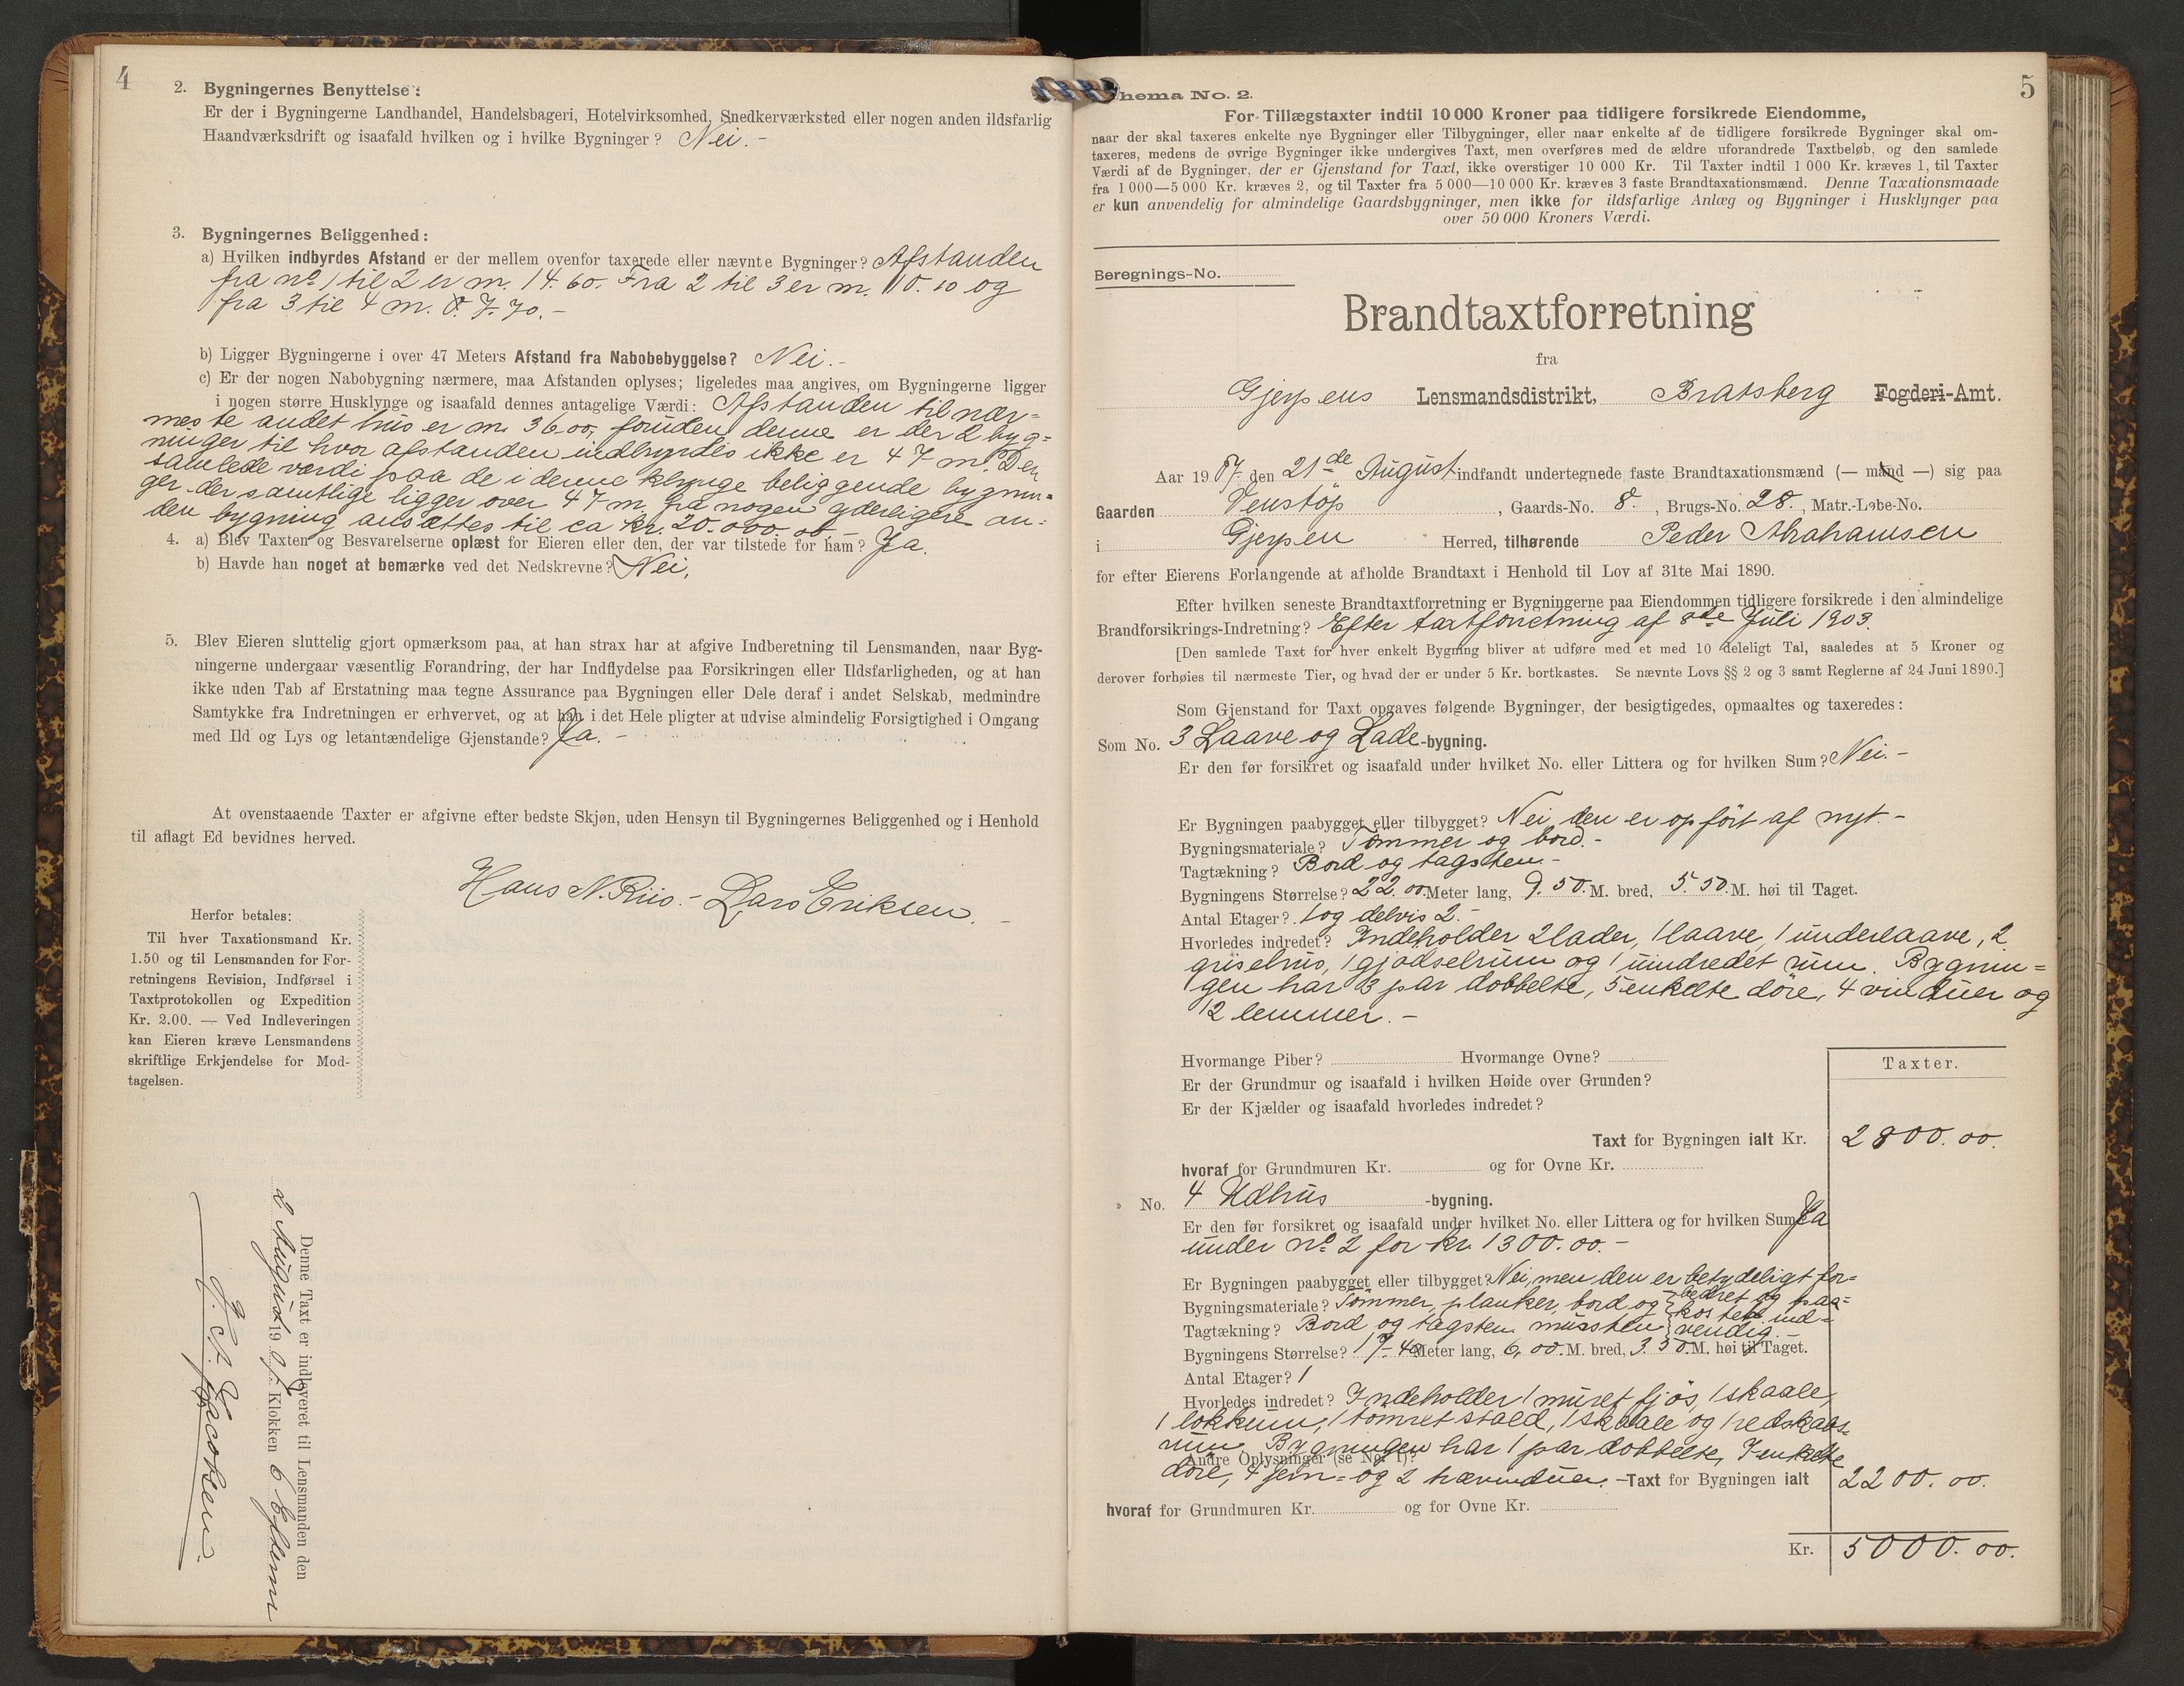 4
2. Bygningernes Benyttelse:
Er der i Bygningerne Landhandel, Handelsbageri, Hotelvirksomhed, Snedkerværksted eller nogen anden ildsfarlig
Haandværksdrift og isaafald hvilken og i hvilke Bygninger? Nei. -
3. Bygningernes Beliggenhed:
a) Hvilken indbyrdes Afstand er der mellem ovenfor taxerede eller nævnte Bygninger? Afstanden
fra no 1 til 2 er m. 14.60. Fra 2 til 3 er m. 10.10 og
fra 3 til 4 m. 7.70. -
b) Ligger Bygningerne i over 47 Meters Afstand fra Nabobebyggelse? Nei. -
c) Er der nogen Nabobygning nærmere, maa Afstanden oplyses; ligeledes maa angives, om Bygningerne ligger
i nogen større Husklynge og isaafald dennes antagelige Værdi: Afstanden til nær=
meste andet hus er m. 36.00, foruden denne er der 2 byg=
ninger til hvor afstanden indbyrdes ikke er 47 m. Den
samlede værdi paa de i denne klynge beliggende bygnin=
ger der samtlige ligger over 47 m. fra nogen yderligere an=
den bygning ansættes til ca kr. 20.000.00. -
4. a) Blev Taxten og Besvarelserne oplæst for Eieren eller den, der var tilstede for ham? Ja.
b) Havde han noget at bemærke ved det Nedskrevne? Nei.
5. Blev Eieren sluttelig gjort opmærksom paa, at han strax har at afgive Indberetning til Lensmanden, naar Byg-
ningerne undergaar væsentlig Forandring, der har Indflydelse paa Forsikringen eller Ildsfarligheden, og at han
ikke uden Tab af Erstatning maa tegne Assurance paa Bygningen eller Dele deraf i andet Selskab, medmindre
Samtykke fra Indretningen er erhvervet, og at han i det Hele pligter at udvise almindelig Forsigtighed i Omgang
med Ild og Lys og letantændelige Gjenstande? Ja. -
At ovenstaaende Taxter er afgivne efter bedste Skjøn, uden Hensyn til Bygningernes Beliggenhed og i Henhold
til aflagt Ed bevidnes herved.
Hans N. Riis. - Lars Eriksen. -
Herfor betales:
Til hver Taxationsmand Kr.
1.50 og til Lensmanden for For-
retningens Revision, Indførsel i
Taxtprotokollen og Expedition
Kr. 2.00. — Ved Indleveringen
kan Eieren kræve Lensmandens
skriftlige Erkjendelse for Mod-
tagelsen.
Denne Taxt er indleveret til Lensmanden den
August 190 Klokken 6 Efterm
Jacobsen.
5
hema No. 2.
For Tillægstaxter indtil 10 000 Kroner paa tidligere forsikrede Eiendomme,
naar der skal taxeres enkelte nye Bygninger eller Tilbygninger, eller naar enkelte af de tidligere forsikrede Bygninger skal om-
taxeres, medens de øvrige Bygninger ikke undergives Taxt, men overføres med de ældre uforandrede Taxtbeløb, og den samlede
Værdi af de Bygninger, der er Gjenstand for Taxt, ikke overstiger 10 000 Kr. Til Taxter indtil 1 000 Kr. kræves 1, til Taxter
fra 1 000—5 000 Kr. kræves 2, og til Taxter fra 5 000—10 000 Kr. kræves 3 faste Brandtaxationsmænd. Denne Taxationsmaade
er kun anvendelig for almindelige Gaardsbygninger, men ikke for ildsfarlige Anlæg og Bygninger i Husklynger paa
over 50 000 Kroners Værdi.
Beregnings-No.
Brandtaxtforretning
fra
Gjerpens Lensmandsdistrikt, Bratsberg Fogderi-Amt.
Aar 1907 den 21de August indfandt undertegnede faste Brandtaxationsmænd (— mand —) sig paa
Gaarden Venstöp, Gaards-No. 8., Brugs-No. 28., Matr.-Løbe-No.
i Gjerpen Herred, tilhørende Peder Abrahamsen
for efter Eierens Forlangende at afholde Brandtaxt i Henhold til Lov af 31te Mai 1890.
Efter hvilken seneste Brandtaxtforretning er Bygningerne paa Eiendommen tidligere forsikrede i den almindelige
Brandforsikrings-Indretning? Efter taxtforretning af 8de Juli 1903.
[Den samlede Taxt for hver enkelt Bygning bliver at udføre med et med 10 deleligt Tal, saaledes at 5 Kroner og
derover forhøies til nærmeste Tier, og hvad der er under 5 Kr. bortkastes. Se nævnte Lovs §§ 2 og 3 samt Reglerne af 24 Juni 1890.]
Som Gjenstand for Taxt opgaves følgende Bygninger, der besigtigedes, opmaaltes og taxeredes:
Som No. 3 Laave og Lade-bygning.
Er den før forsikret og isaafald under hvilket No. eller Littera og for hvilken Sum? Nei. -
Er Bygningen paabygget eller tilbygget? Nei, den er opfört af nyt. -
Bygningsmateriale? Tömmer og bord. -
Tagtækning? Bord og tagsten. -
Bygningens Størrelse? 22.00 Meter lang, 9.50. M. bred, 5.50. M. høi til Taget.
Antal Etager? 1 og delvis 2. -
Hvorledes indredet? Indeholder 2 lader, 1 laave, 1 underlaave, 2
grisehus, 1 gjödselrum og 1 uindredet rum. Bygnin=
gen har 3 par dobbelte, 5 enkelte döre, 4 vinduer og
12 lemmer. -
Hvormange Piber? Hvormange Ovne?
Er der Grundmur og isaafald i hvilken Høide over Grunden?
Er der Kjælder og isaafald hvorledes indredet?
Taxter.
Taxt for Bygningen ialt Kr. 2800.00.
hvoraf for Grundmuren Kr. og for Ovne Kr.
» No. 4 Udhus -bygning.
Er den før forsikret og isaafald under hvilket No. eller Littera og for hvilken Sum? Ja
under no 2 for kr. 1300.00. -
Er Bygningen paabygget eller tilbygget? Nei, men den er betydeligt for=
bedret og paa=
kostet ind=
vendig. -
Bygningsmateriale? Tömmer, planker, bord og
mursten
Tagtækning? Bord og tagsten
Bygningens Størrelse? 17.40 Meter lang, 6,00. M. bred, 3.50. M. høi til Taget.
Antal Etager? 1
Hvorledes indredet? Indeholder 1 muret fjös, 1 skaale,
1 lokkum, 1 tömret stald, 1 skaale og redskabs-
rum. Bygningen har 1 par dobbelte, 7 enkelte
Andre Oplysninger (se No. 1)?
döre, 4 jern= og 2 trævinduer. - Taxt for Bygningen ialt 2200.00.
hvoraf for Grundmuren Kr. og for Ovne Kr.
Kr. 5000.00.